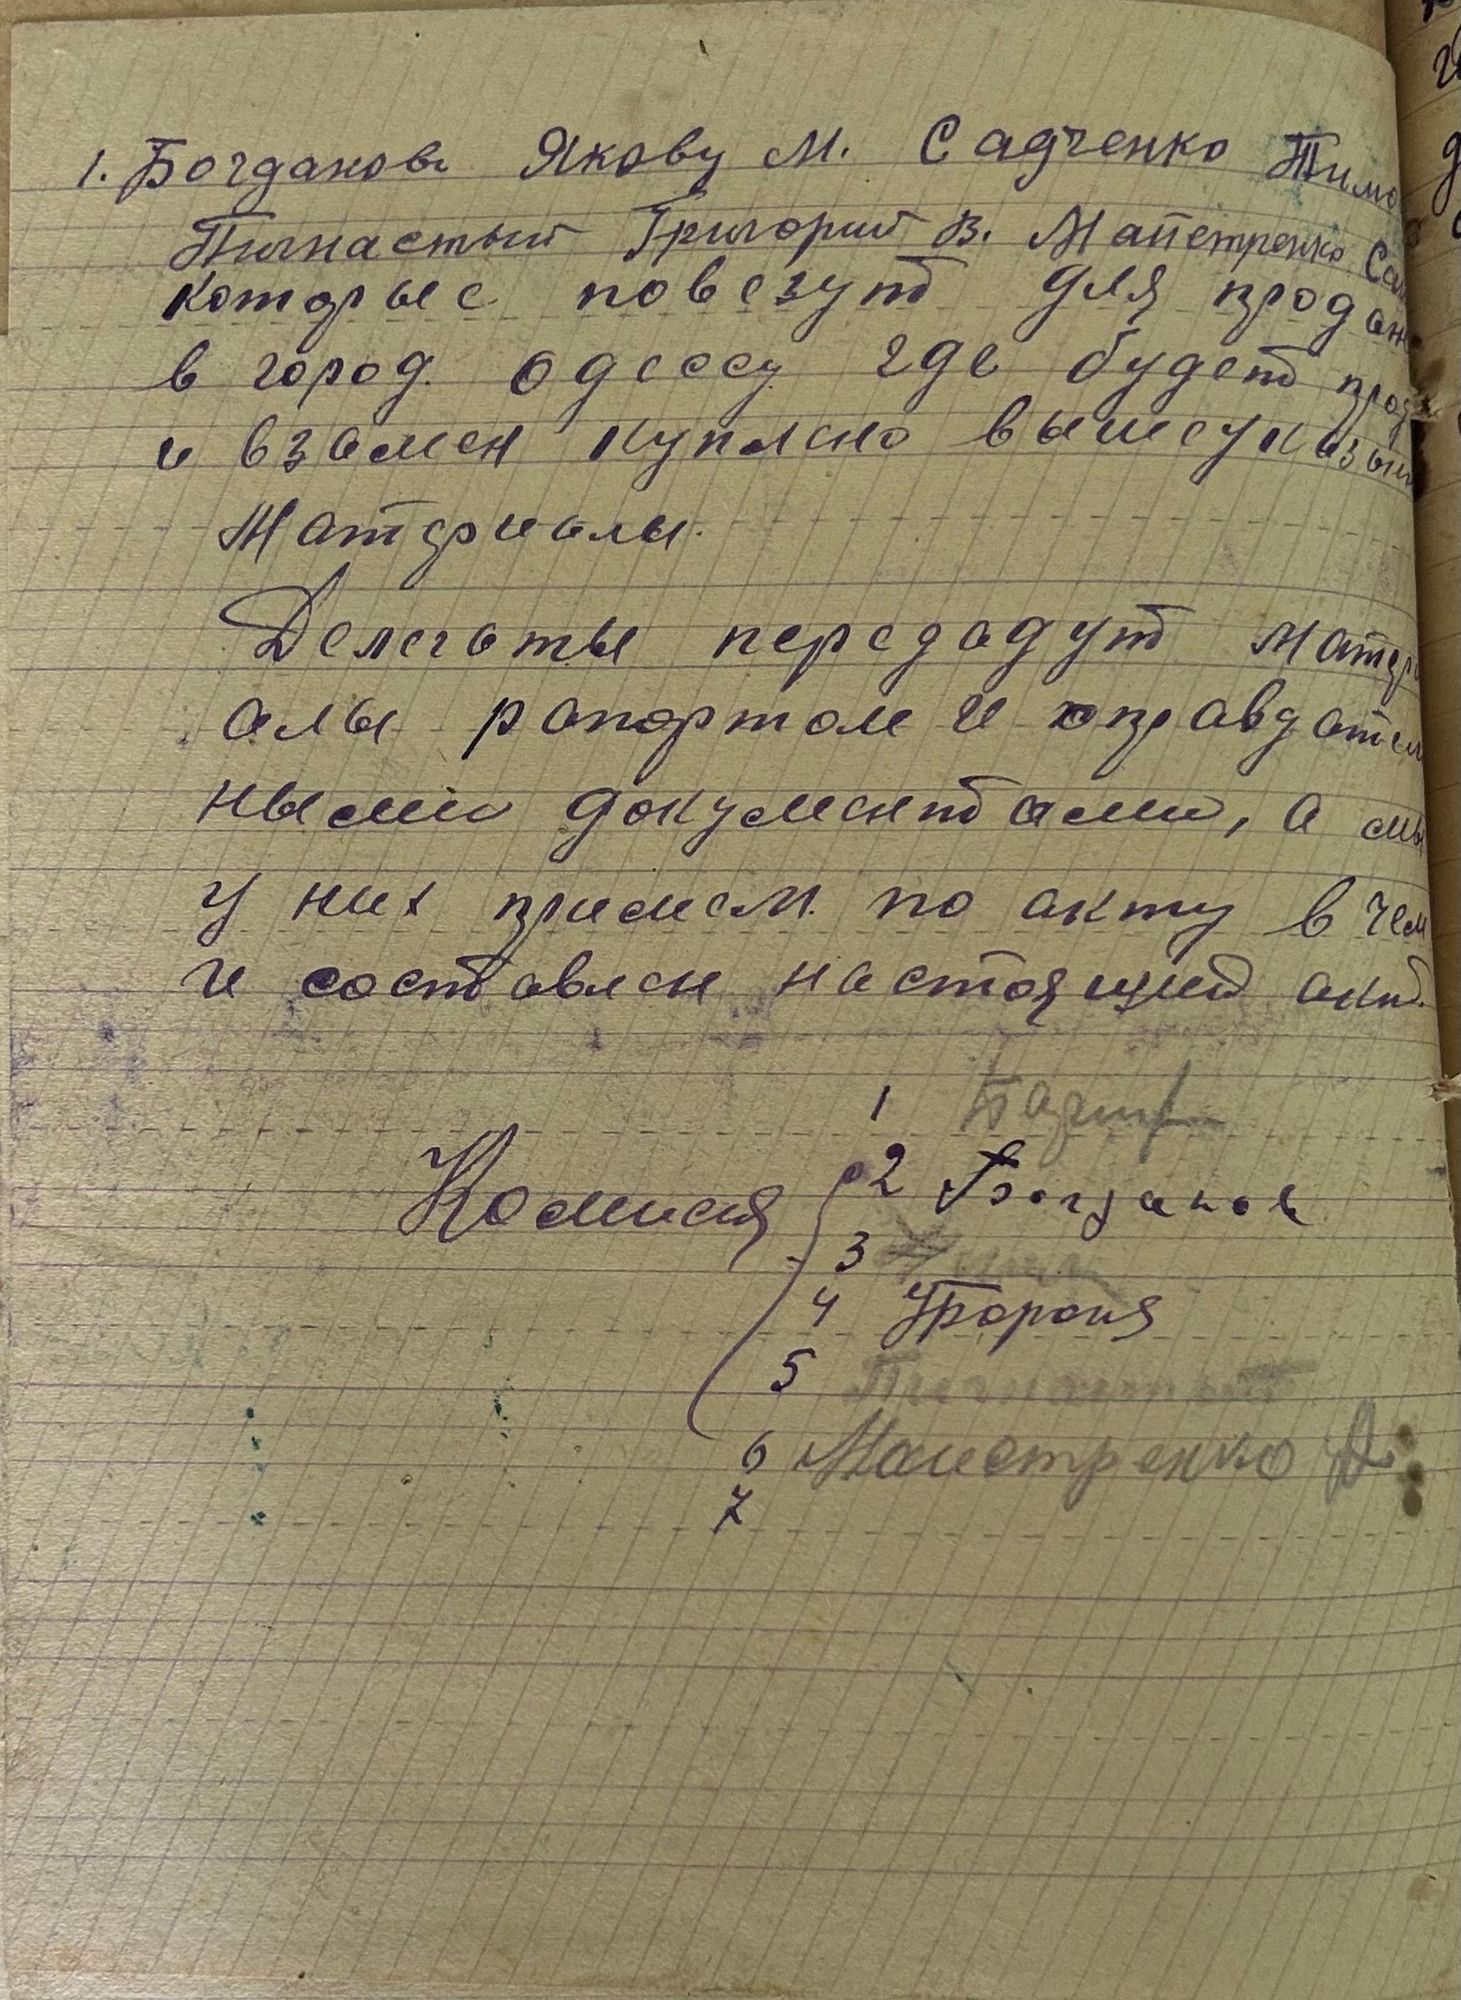 1. Богданов Якову М. Садченко Тимо
Пичнастый Григорий В. Майстренко Сам
которые повезут для продаж
в город. одессу где будет прод
и взамен куплено вышеуказын
Материалы.
Делегаты передадут матери
алы рапортом и оправдатель
ными документами, а мы
у них примем. по акту в чем
и составлен настоящий акт.
1
Комисия 2 Богданов
3
4 Бороня
5 Пичнастый
6 Маистренко Д.
7